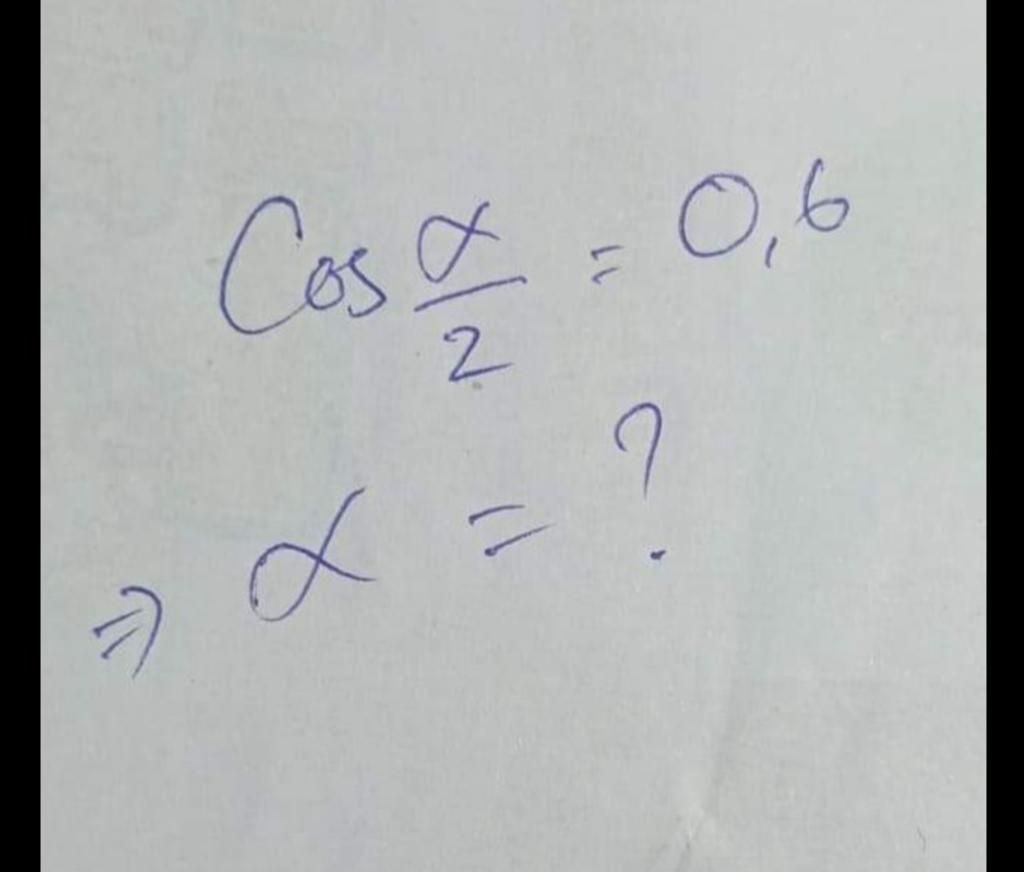 Cos α/2 = 0,6
⇒ α = ?